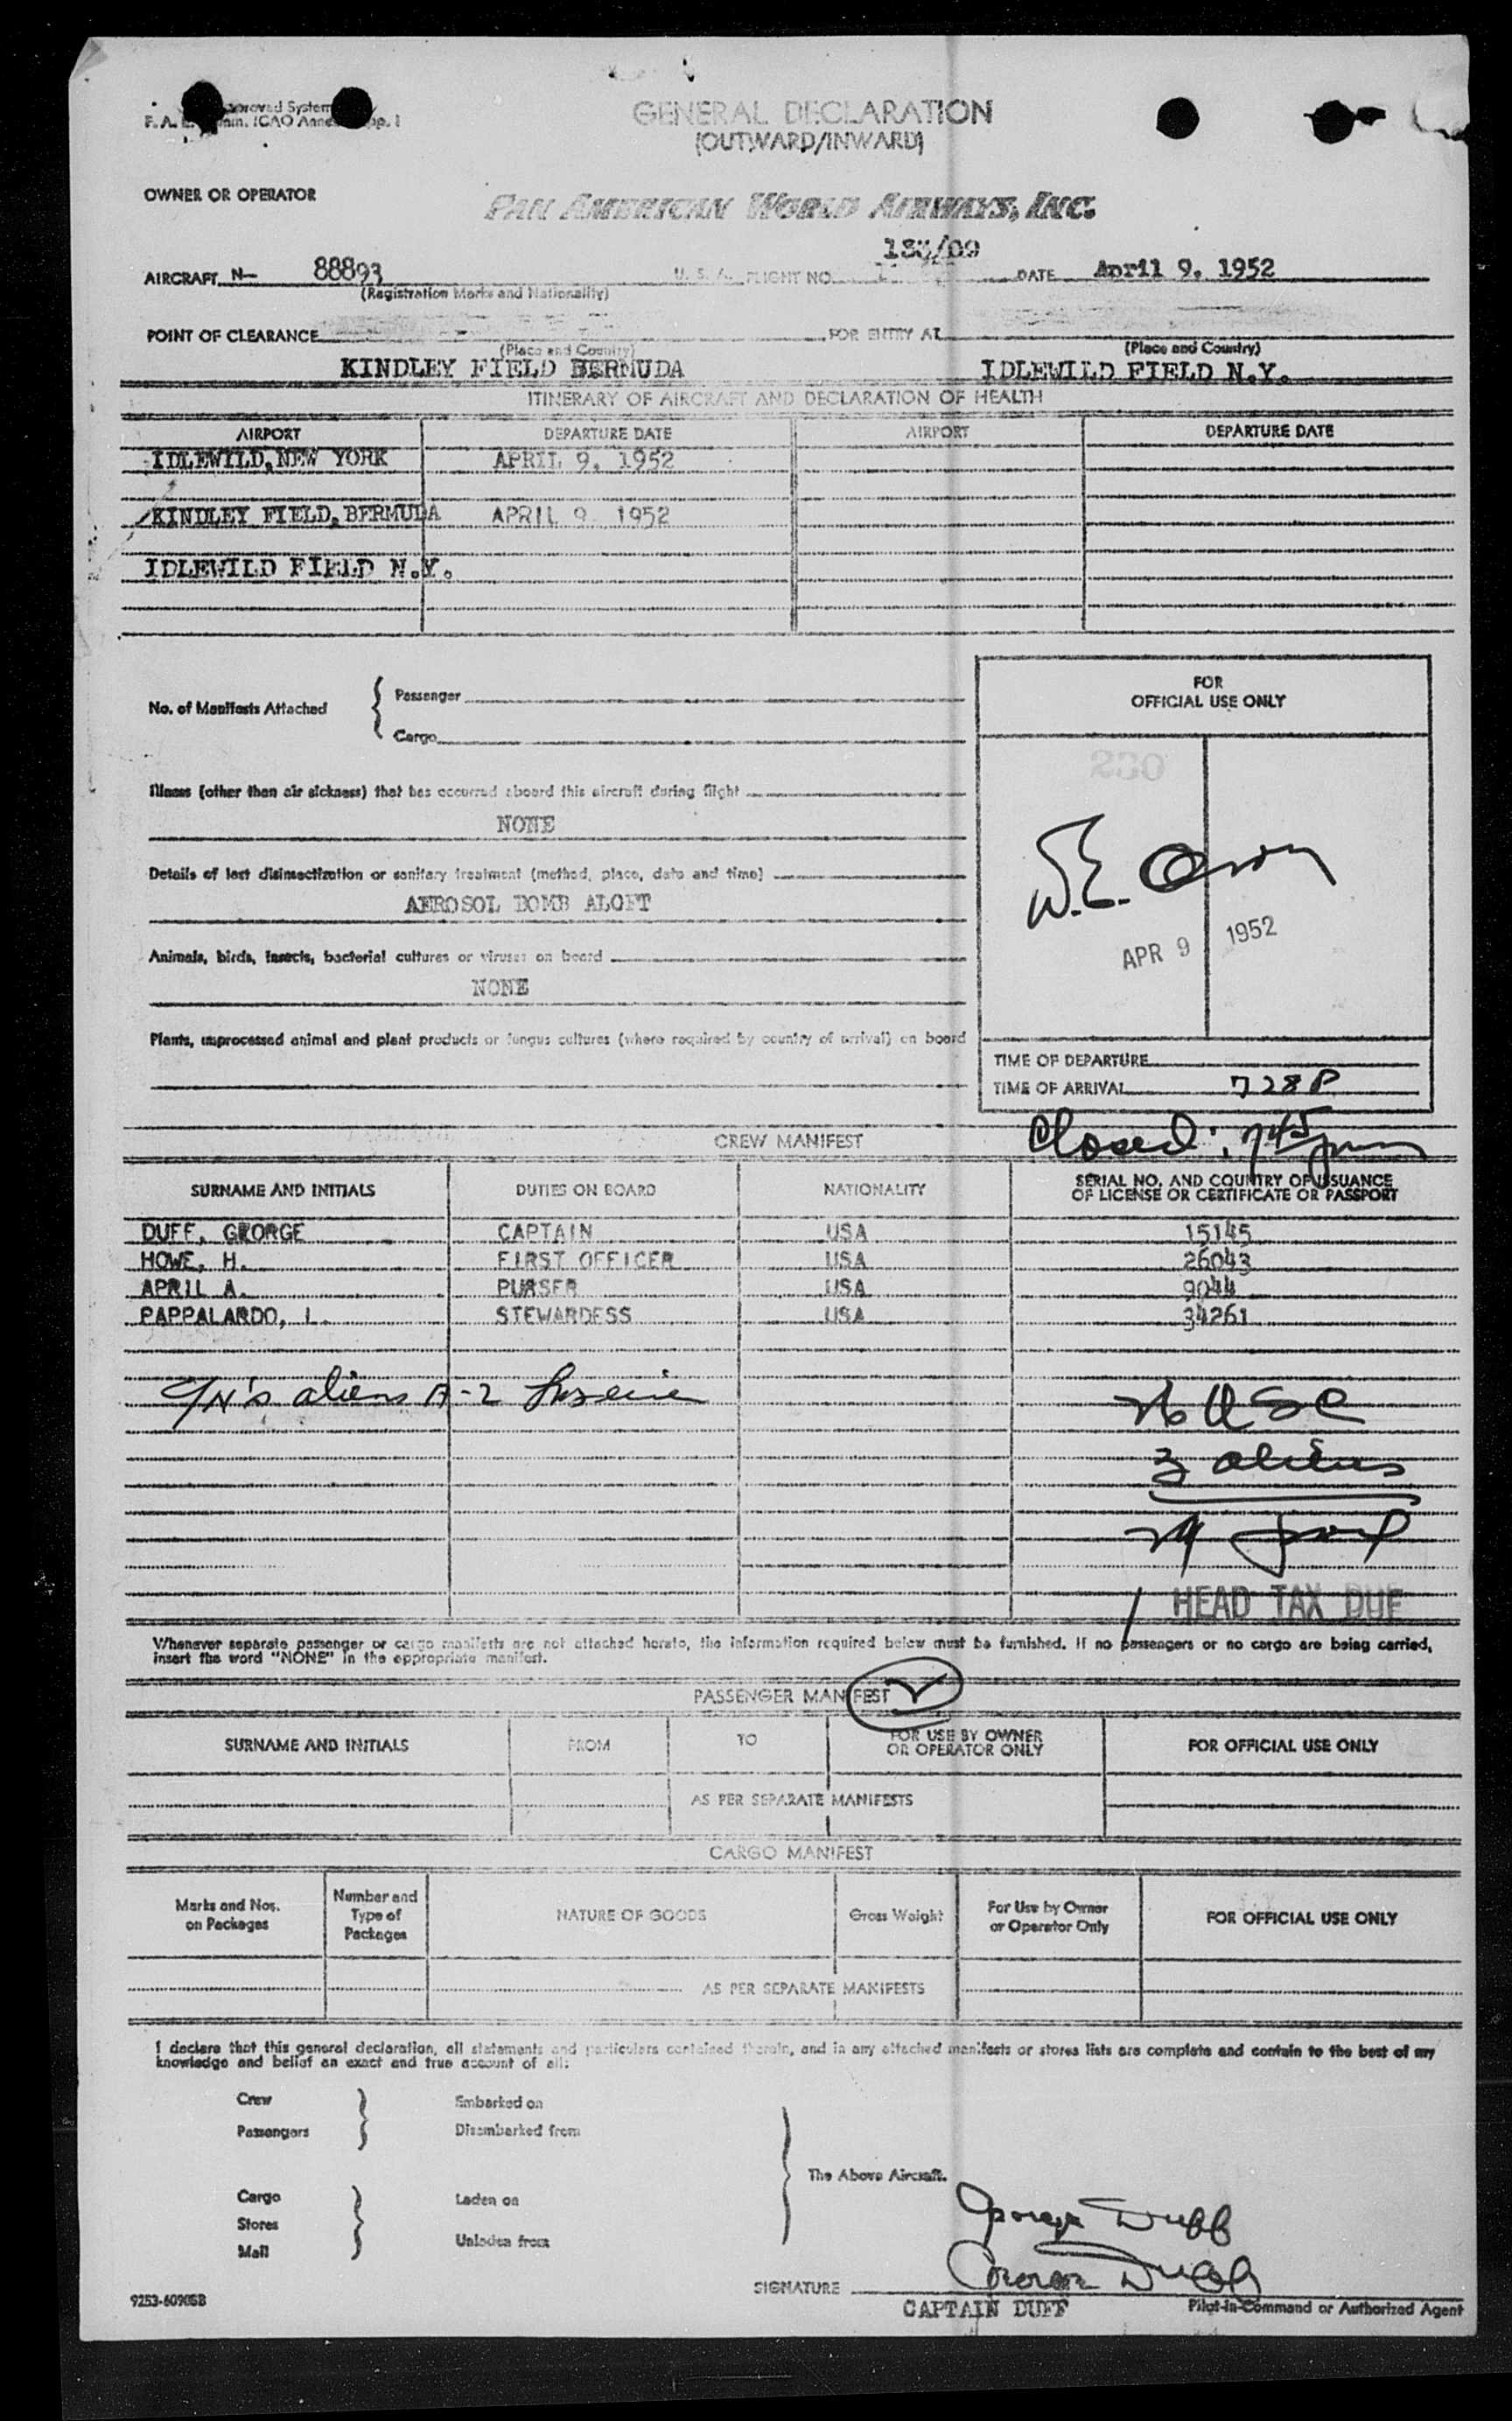 GENERAL DECLARATION
(OUTWARD/INWARD)
OWNER OR OPERATOR
PAN AMERICAN WORLD AIRWAYS, INC.
AIRCRAFT N- 88893 U. S. A. FLIGHT NO. DATE April 9, 1952
(Registration Marks and Nationality)
POINT OF CLEARANCE FOR ENTRY AT
(Place and Country) (Place and Country)
KINDLEY FIELD BERMUDA IDLEWILD FIELD N.Y.
ITINERARY OF AIRCRAFT AND DECLARATION OF HEALTH
AIRPORT DEPARTURE DATE AIRPORT DEPARTURE DATE
IDLEWILD, NEW YORK APRIL 9, 1952
KINDLEY FIELD, BERMUDA APRIL 9 1952
IDLEWILD FIELD N.Y.
No. of Manifests Attached
Passenger
Cargo
FOR
OFFICIAL USE ONLY
230
Illness (other than air sickness) that has occurred aboard this aircraft during flight
NONE
Details of last disinsectization or sanitary treatment (method, place, date and time)
AEROSOL BOMB ALOFT
W.E.
APR 9 1952
Animals, birds, insects, bacterial cultures or viruses on board
NONE
Plants, unprocessed animal and plant products or fungus cultures (where required by country of arrival) on board
TIME OF DEPARTURE
TIME OF ARRIVAL 728P
Closed: 745
CREW MANIFEST
SURNAME AND INITIALS DUTIES ON BOARD NATIONALITY SERIAL NO. AND COUNTRY OF ISSUANCE
OF LICENSE OR CERTIFICATE OR PASSPORT
DUFF, GEORGE CAPTAIN USA 15145
HOWE, H. FIRST OFFICER USA 26043
APRIL A. PURSER USA 9044
PAPPALARDO, I. STEWARDESS USA 34261
aliens
USC
3 aliens
HEAD TAX DUE
Whenever separate passenger or cargo manifests are not attached hereto, the information required below must be furnished. If no passengers or no cargo are being carried,
insert the word "NONE" in the appropriate manifest.
PASSENGER MANIFEST
SURNAME AND INITIALS FROM TO FOR USE BY OWNER
OR OPERATOR ONLY FOR OFFICIAL USE ONLY
AS PER SEPARATE MANIFESTS
CARGO MANIFEST
Marks and Nos.
on Packages
Number and
Type of
Packages
NATURE OF GOODS
Gross Weight
For Use by Owner
or Operator Only
FOR OFFICIAL USE ONLY
AS PER SEPARATE MANIFESTS
I declare that this general declaration, all statements and particulars contained therein, and in any attached manifests or stores lists are complete and contain to the best of my
knowledge and belief an exact and true account of all:
Crew Embarked on
Passengers Disembarked from
The Above Aircraft.
Cargo Laden on
Stores
Mail Unladen from
George Duff
George Duff
SIGNATURE
CAPTAIN DUFF Pilot-in-Command or Authorized Agent
9253-60905B